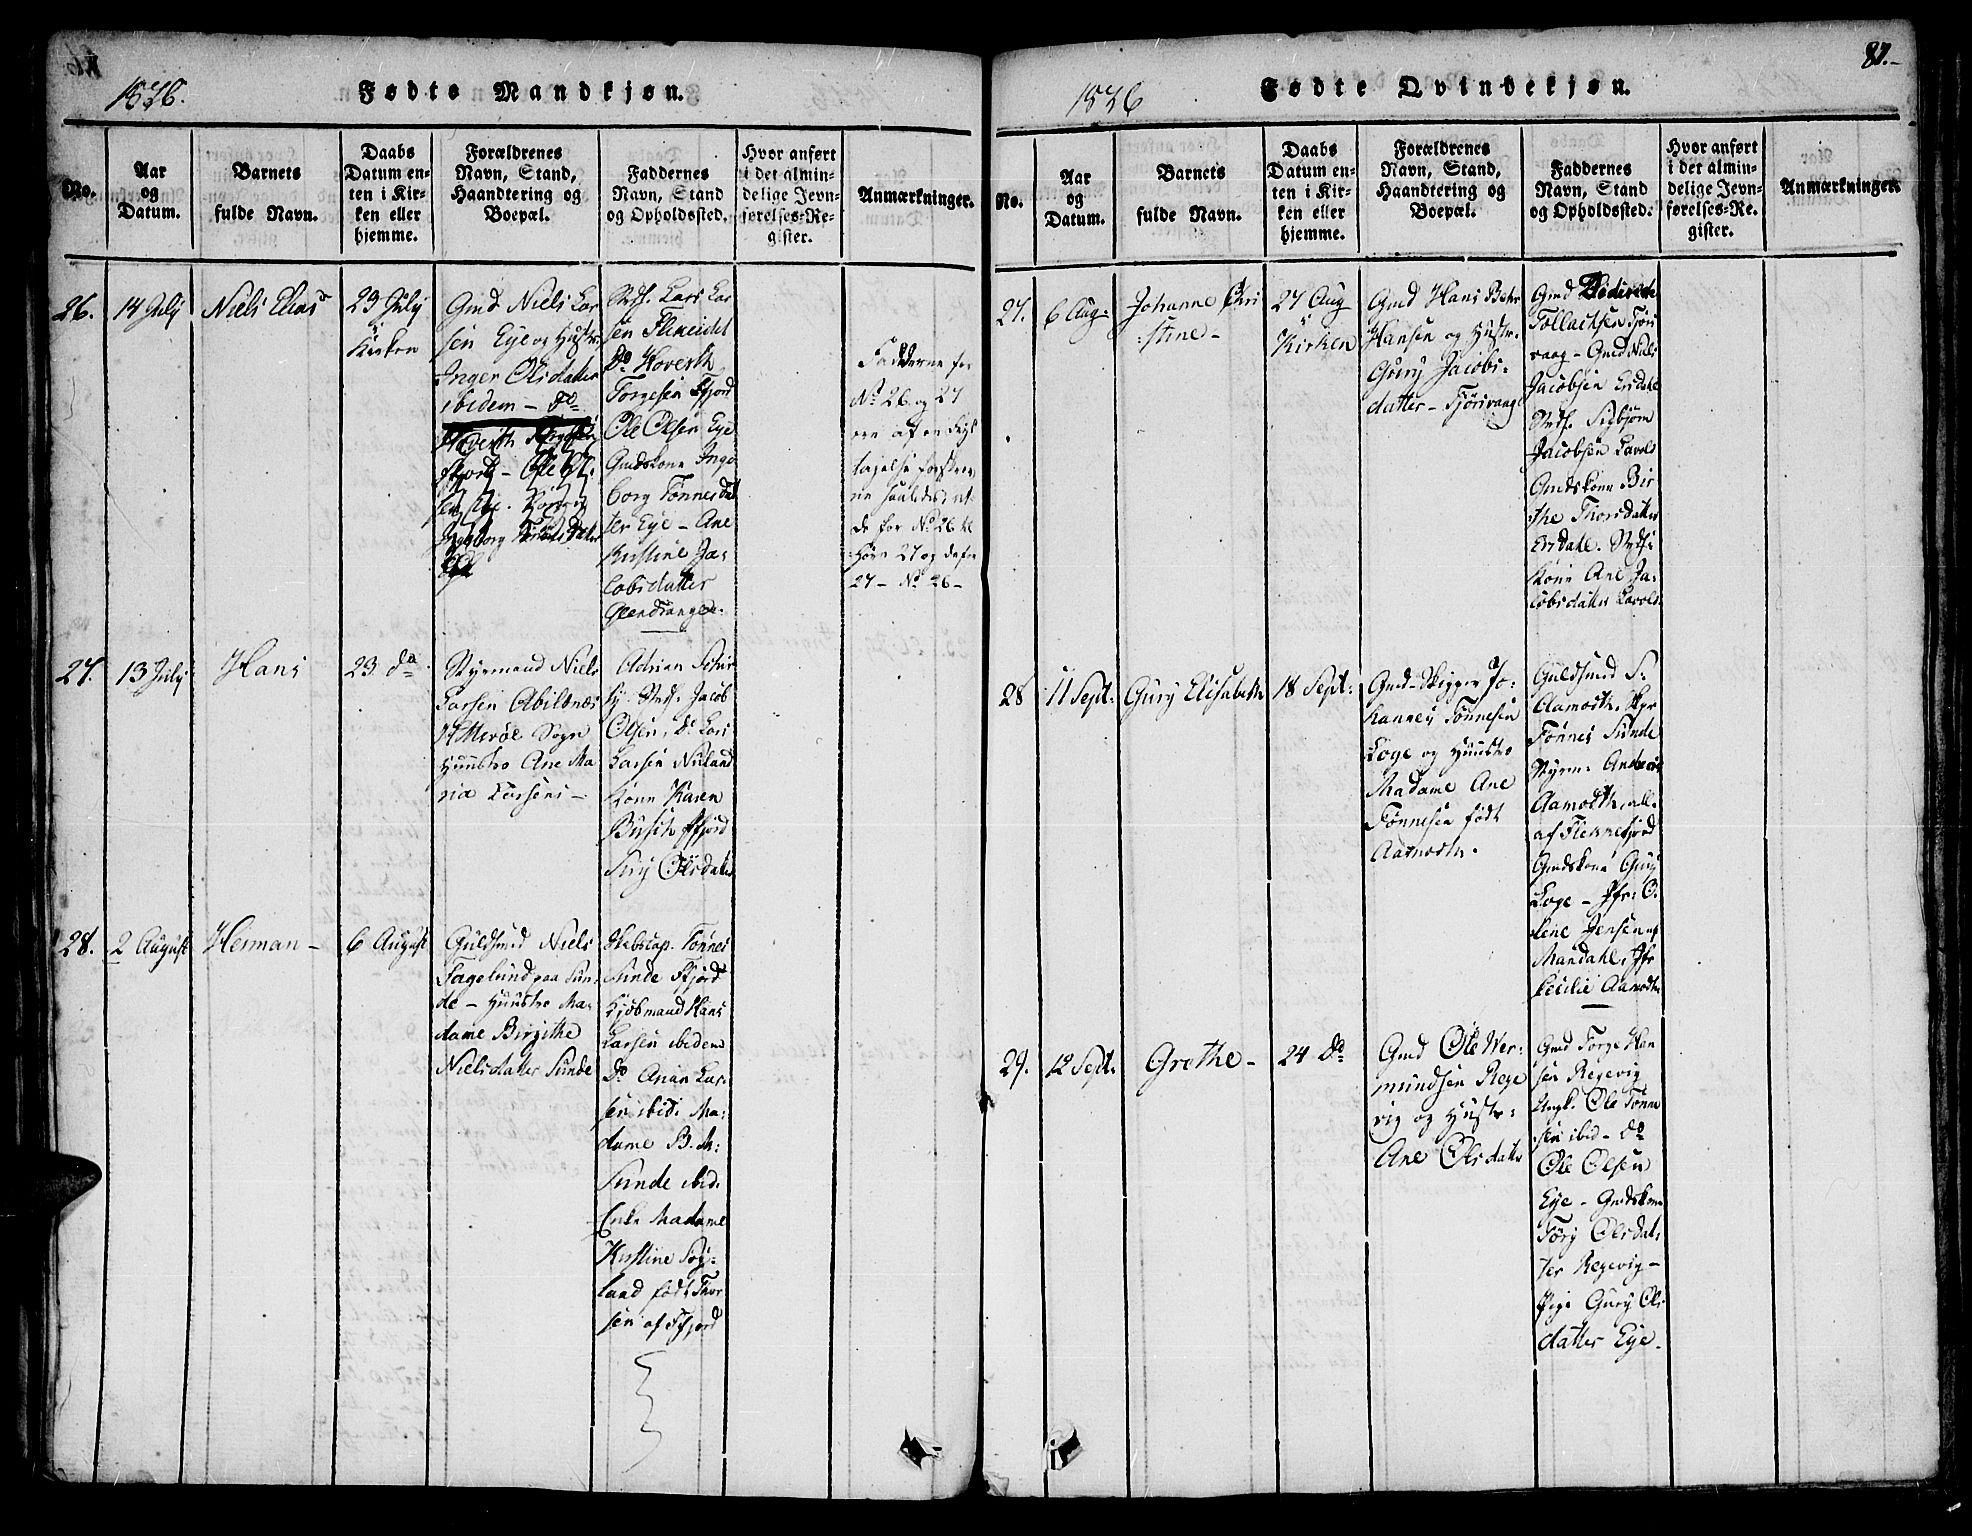 1826.
Fødte Mandkjøn.
No.
Aar
og
Datum.
Barnets
fulde Navn.
Daabs
Datum en-
ten i Kir-
ken eller
hjemme.
Forældrenes
Navn, Stand,
Haandtering og
Boepæl.
Faddernes
Navn, Stand
og Opholdssted.
Hvor anført
i det almin-
delige Jevn-
førelses-Re-
gister.
Anmærkninger.
26.
14 July
Niels Elias
23 July
Kirken
Gmd Niels Lar
sen Eye og Hustr:
Inger Olsdatter
ibidem - Do
Strdf. Lars Lar
sen
Do Hoverth
Torgesen Ffjord
Ole Olsen Eye
Gmdskone Inge
borg Tønnesdat
ter Eye - Ane
Kirstine Ja-
cobsdatter
Fadderne for
No 26 og 27
ere af en
tagelse
ne saaledes at
de for No 26 til
hører 27 og de for
27 - No 26 -
27.
13 July
Hans
23 do
Styrmand Niels
Larsen Abilsnes
Hitterøe Sogn
Huustro Ane Ma
ria Larsens -
Adrian
Strdf. Jacob
Olsen, Do Lars
Larsen Nuland
kone Karen
Busch Ffjord
Siry Olsdatter
28.
2 August
Herman -
6 August
Guldsmed Niels
Fagelund paa Sun
de - Huustro Ma-
dame Birgithe
Nielsdatter Sunde
Skibscap. Tønnes
Sunde Ffjord
Kjøbmand Hans
Larsen ibidem
Do Anan Lar-
sen ibid. Ma-
dame B. M:
Sunde ibid.
Enke Madame
Kirstine Sog-
land født Thor
sen af Ffjord
1826
Fødte Qvindekjøn.
87.-
No.
Aar
og
Datum.
Barnets
fulde Navn.
Daabs
Datum en-
ten i Kir-
ken eller
hjemme.
Forældrenes
Navn, Stand,
Haandtering og
Boepæl.
Faddernes
Navn, Stand
og Opholdssted.
Hvor anført
i det almin-
delige Jevn-
førelses-Re-
gister.
Anmærkninger.
27.
6 Aug:
Johanne Chri
stine -
27 Aug
Kirken
Gmd Hans Behr
Hansen og Hustr.
Gury Jacobs-
datter - Tjørsvaag
Gmd
Tollachsen Tjørs
vaag - Gmd Niels
Jacobsen Ersdahl
Strdf. Sigbjørn
Jacobsen Lavold
Gmdskone Bir
the Thorsdatter
Ersdahl. Strdfs
kone Ane Ja-
cobsdatter Lavold.
28
11 Sept:
Gury Elisabeth
18 Sept:
Gmd - Skipper Jo-
hannes Tønnesen
Loge og Huustro
Madame Ane
Tønnesen født
Aamodtn.
Guldsmed S.
Aamodtn. Skpr
Tønnes Sunde
Styrm: Andreas
Aamodtn, all.
af Flekkefjord
Gmdskone Gury
Loge - Jfr: O-
lene Jensen af
Mandahl, Jfr
Cecilie Aamodtn
29.
12 Sept:
Grethe -
24 Do
Gmd Ole Wer-
mundsen Rege
vig og Hustr:
Ane Olsdatter
Gmd Torge Han
sen Regevig
Ungk. Ole Tønne
sen ibid - Do
Ole Olsen
Eye - Gmdskone
Tory Olsdat-
ter Regevig -
Pige Gury Ols
datter Eye.